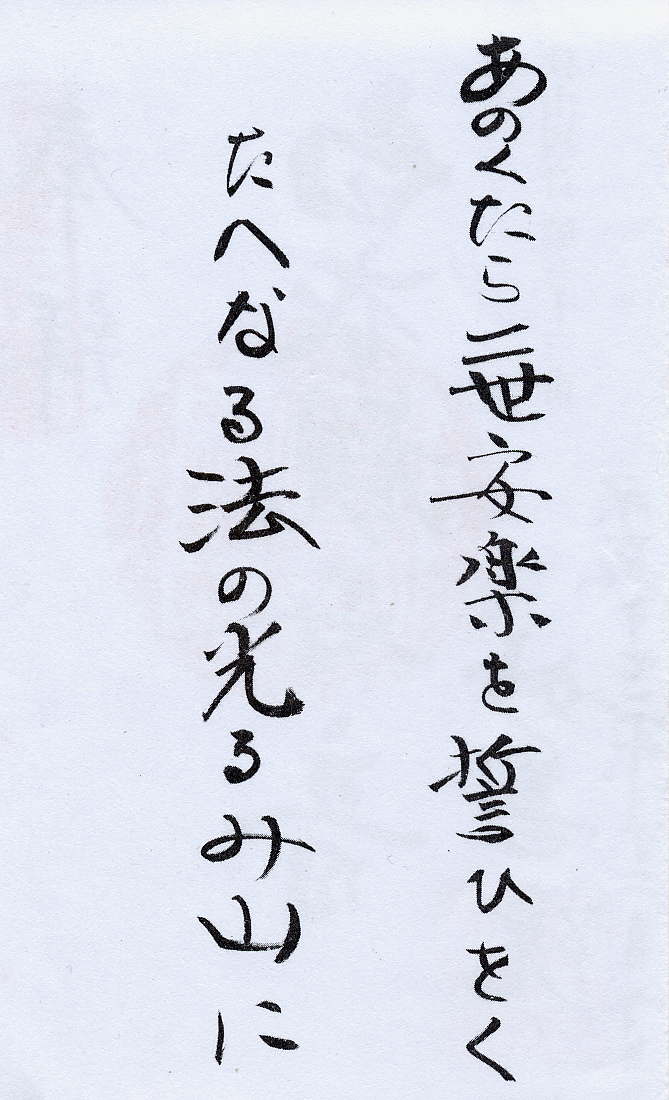 あのくたら二世安楽を誓ひをく
たへなる法の光るみ山に